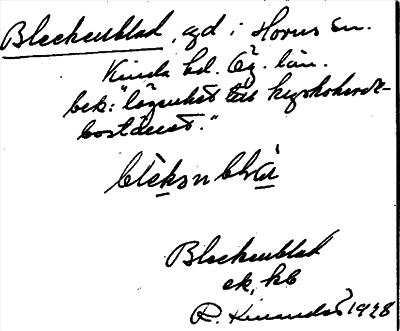 Bleckenblad, gd i Horns sn.
Kinda hd. Ög. län.
bek: "lägenhet till kyrkoherde-
bostället."
Bleckenblad
ek, kb
R. 1928